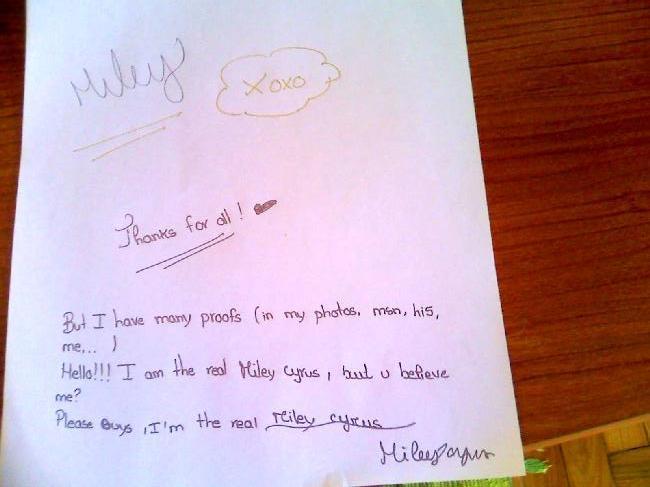 Miley
xoxo
Thanks for all!
But I have many proofs (in my photos, msn, hi5,
me,... )
Hello!!! I am the real Miley Cyrus, but u believe
me?
Please Guys, I'm the real Miley cyrus
Miley Cyrus